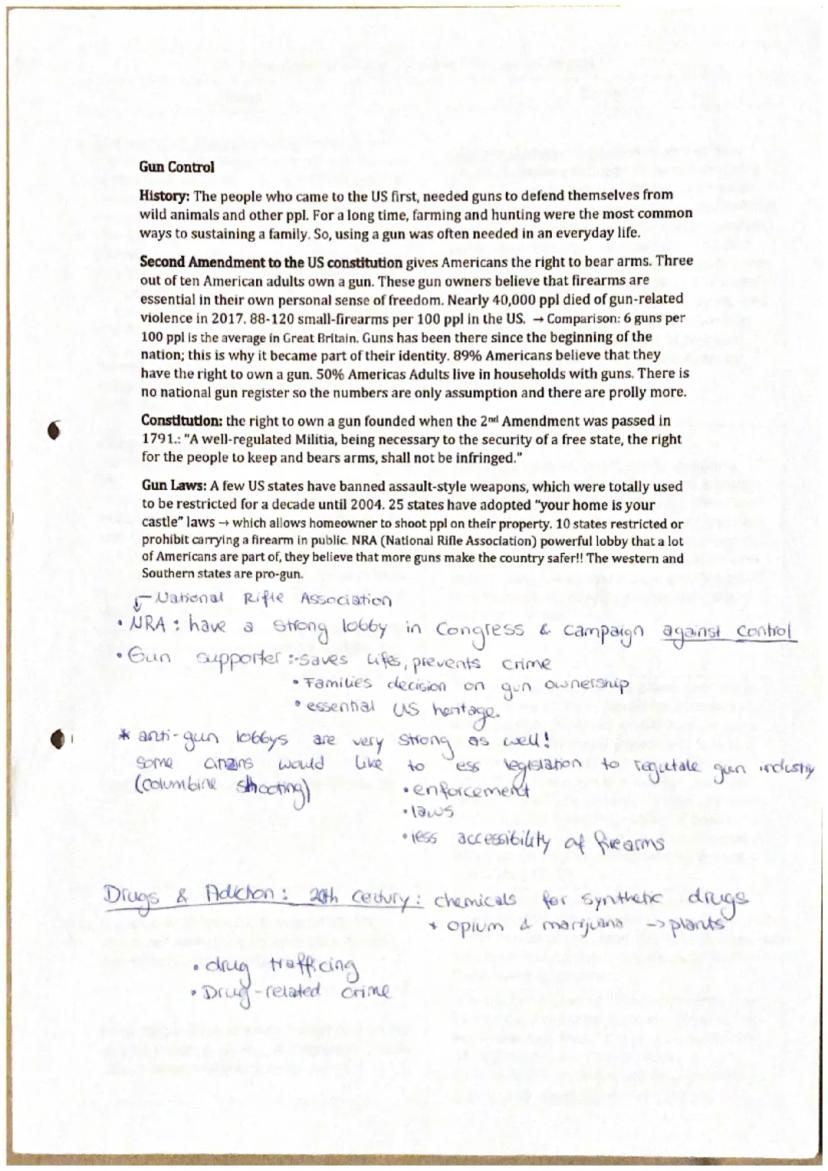 Gun Control
History: The people who came to the US first, needed guns to defend themselves from
wild animals and other ppl. For a long time, farming and hunting were the most common
ways to sustaining a family. So, using a gun was often needed in an everyday life.
Second Amendment to the US constitution gives Americans the right to bear arms. Three
out of ten American adults own a gun. These gun owners believe that firearms are
essential in their own personal sense of freedom. Nearly 40,000 ppl died of gun-related
violence in 2017. 88-120 small-firearms per 100 ppl in the US. → Comparison: 6 guns per
100 ppl is the average in Great Britain. Guns has been there since the beginning of the
nation; this is why it became part of their identity. 89% Americans believe that they
have the right to own a gun. 50% Americas Adults live in households with guns. There is
no national gun register so the numbers are only assumption and there are prolly more.
Constitution: the right to own a gun founded when the 2nd Amendment was passed in
1791.: "A well-regulated Militia, being necessary to the security of a free state, the right
for the people to keep and bears arms, shall not be infringed."
Gun Laws: A few US states have banned assault-style weapons, which were totally used
to be restricted for a decade until 2004. 25 states have adopted "your home is your
castle" laws → which allows homeowner to shoot ppl on their property. 10 states restricted or
prohibit carrying a firearm in public. NRA (National Rifle Association) powerful lobby that a lot
of Americans are part of, they believe that more guns make the country safer!! The western and
Southern states are pro-gun.
National Rifle Association
• NRA: have a strong lobby in Congress & campaign against control
• Gun supporter: -saves lifes, prevents crime
• Families decision on gun ownership
• essential US heritage.
* anti-gun lobbys are very strong as well!
some would like to ess legislation to regulate gun industry
(columbine shooting) • enforcement
• laws
• less accessibility of firearms
Drugs & Adiction: 20th century: chemicals for synthetic drugs
+ opium & marijuana -> plants
• drug trafficing
• Drug-related crime